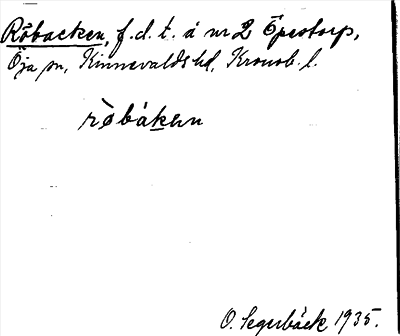 Röbacken, f.d.t. å nr 2 Öpestorp,
Öja sn, Kinnevalds hd, Kronob. l.
röbáken
O. Segerbäck 1935.